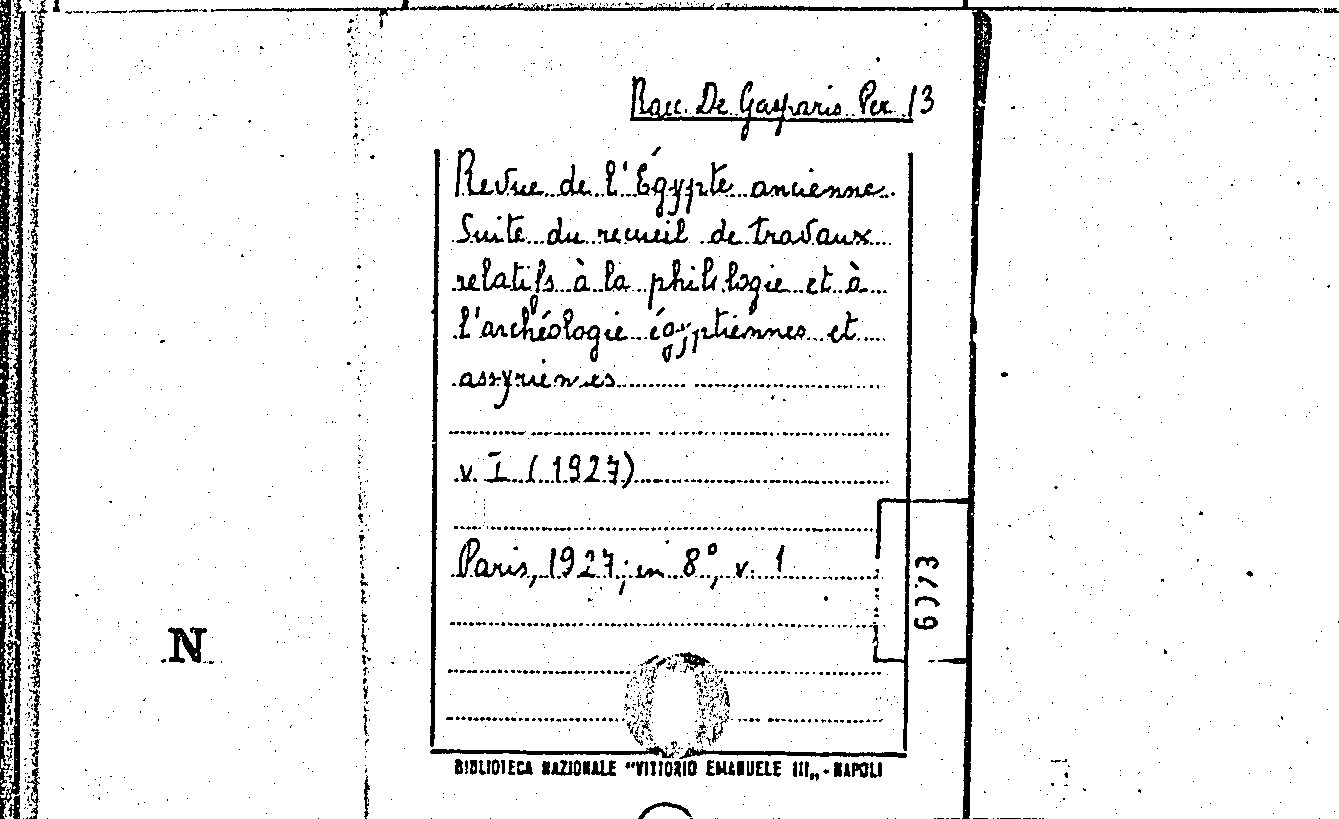 Racc. De Gasparis Per 13
Revue de l'Égypte ancienne.
Suite du recueil de travaux
relatifs à la philologie et à
l'archéologie égyptiennes et
assyriennes
v. I (1927)
Paris, 1927; in 8°, v. 1
6773
N
BIBLIOTECA NAZIONALE "VITTORIO EMANUELE III„ - NAPOLI